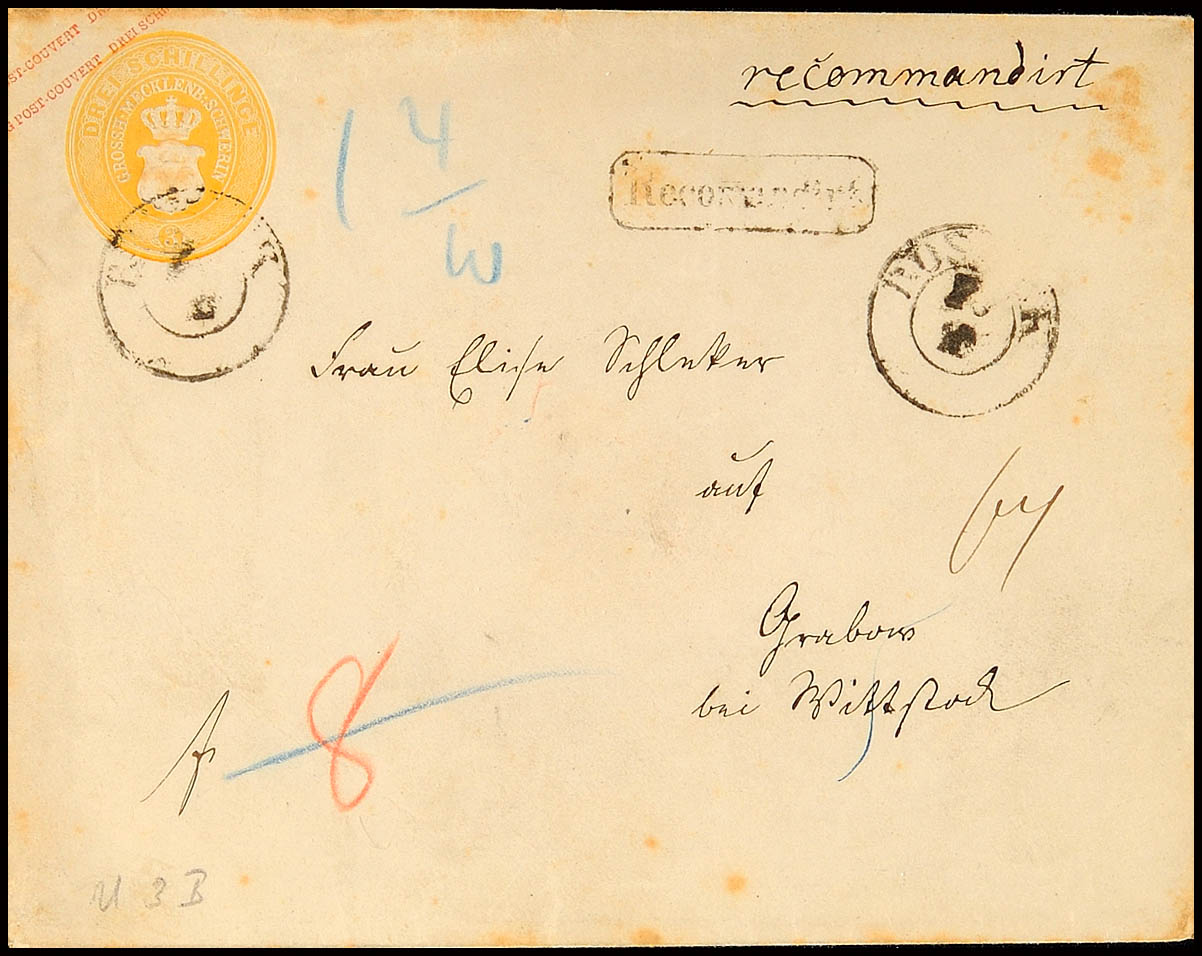 ST-COUVERT DR
G POST-COUVERT DREI SCH
DREI SCHILLINGE
GROSSH. MECKLENB. SCHWERIN
3
recommandirt
1 4
Recomandirt
ROS K
Frau Elise Schleker
auf
Grabow
bei Wittstock
8
U 3 B